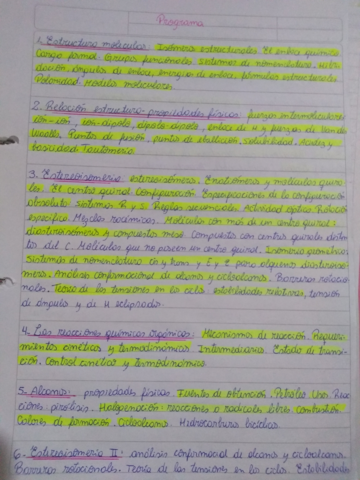 Programa
1. Estructura molecular: Isómeros estructurales. El enlace químico.
Carga formal. Grupos funcionales. Sistemas de nomenclatura, hibri-
dación, ángulos de enlace, energía de enlace, fórmulas estructurales
Polaridad. Modelos moleculares.
2. Relación estructura-propiedades físicas: fuerzas intermoleculares
ion-ion, ion-dipolo, dipolo-dipolo, enlace de H y fuerzas de Van der
Waals, Puntos de fusión, puntos de ebullición, solubilidad, Acidez y
basicidad. Tautomería.
3. Estereoisomería: estereoisómeros. Enantiómeros y moléculas quira-
les. El centro quiral. Configuración. Especificaciones de la configuración
absoluta: sistemas R y S. Reglas secuenciales. Actividad óptica. Rotación
específica. Mezclas racémicas. Moléculas con más de un centro quiral:
diastereoisómeros y compuestos meso. Compuestos con centros quirales distin-
tos del C. Moléculas que no poseen un centro quiral. Isomería geométrica:
Sistemas de nomenclatura Cis y trans, y E y Z para alqueno diastereoisó-
meros. Análisis conformacional de alcanos y cicloalcanos. Barreras rotacio-
nales. Teoría de las tensiones en los ciclos: estabilidades relativas, tensión
de ángulo y de H eclipsados.
4. Las reacciones químicas orgánicas: Mecanismos de reacción. Requeri-
mientos cinéticos y termodinámicos. Intermediarios. Estado de transi-
ción. Control cinético y termodinámico
5. Alcanos: propiedades físicas. Fuentes de obtención. Petróleo. Usos. Reac-
ciones: pirólisis. Halogenación: reacciones a radicales libres. Combustión.
Calores de formación. Cicloalcanos. Hidrocarburos bicíclicos.
6. Estereoisomería II: análisis conformacional de alcanos y cicloalcanos.
Barreras rotacionales. Teoría de las tensiones en los ciclos. Estabilidades